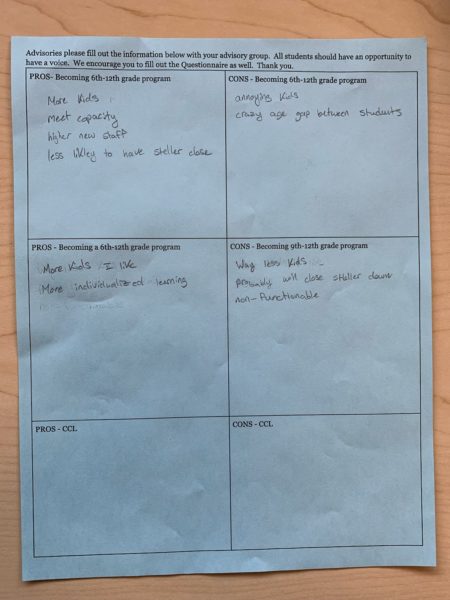 Advisories please fill out the information below with your advisory group.  All students should have an opportunity to
have a voice.  We encourage you to fill out the Questionnaire as well.  Thank you.
PROS- Becoming 6th-12th grade program
More Kids
Meet capacity
higher new staff
less likley to have steller close
CONS - Becoming 6th-12th grade program
annoying kids
crazy age gap between students
PROS - Becoming a 6th-12th grade program
More Kids I like
More individualized learning
CONS - Becoming 9th-12th grade program
Way less Kids
probably will close steller down
non-functionable
PROS - CCL
CONS - CCL